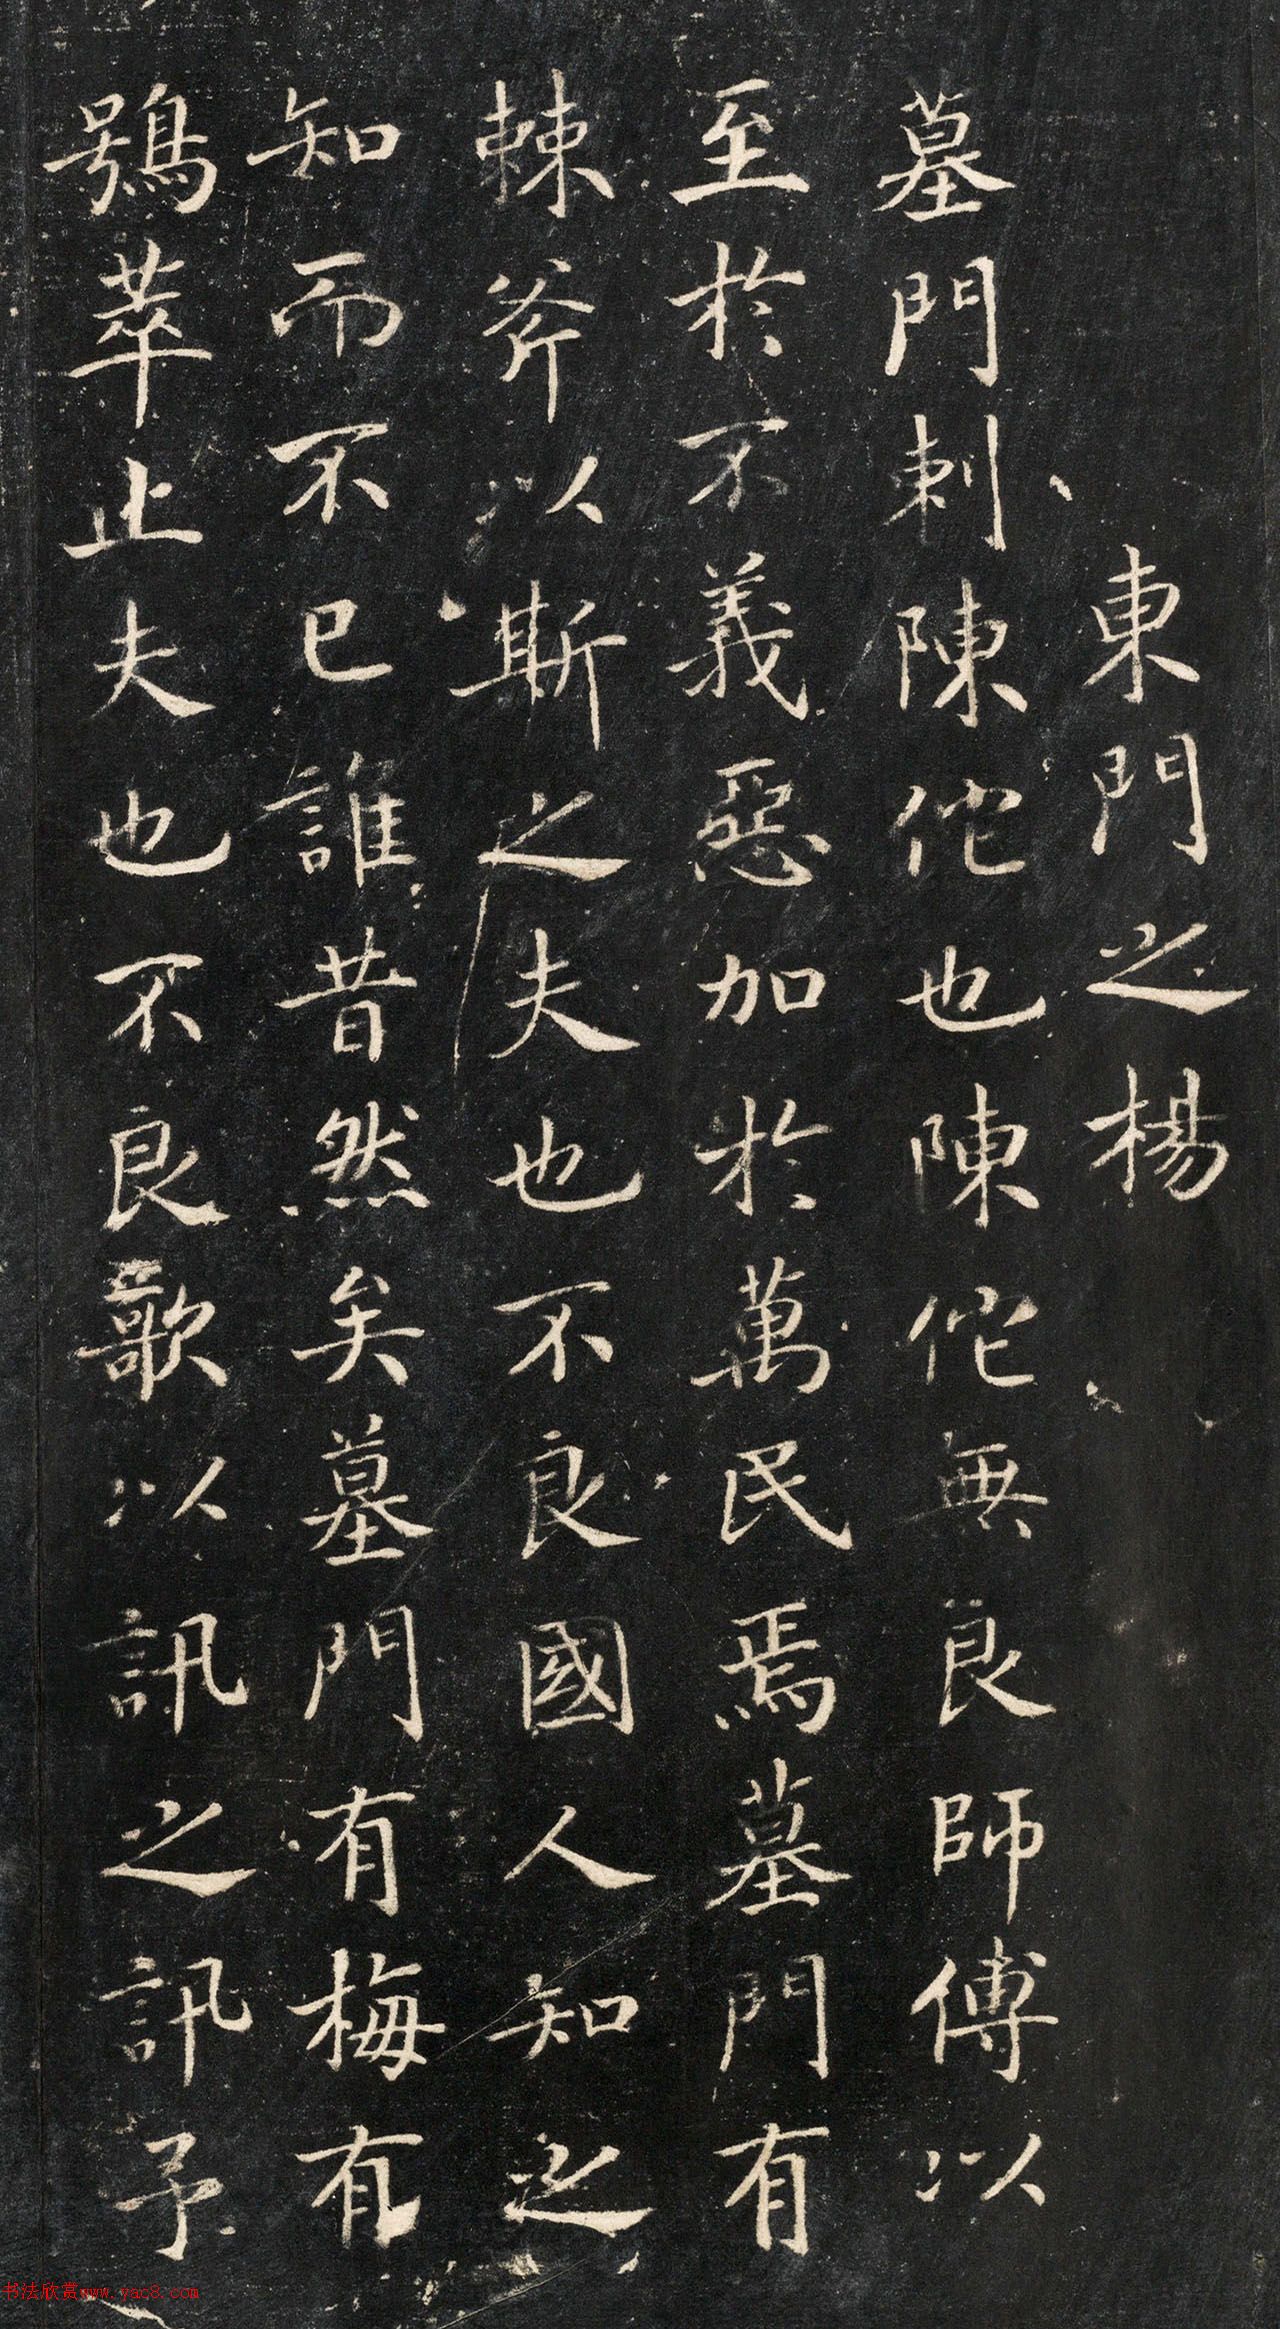 東門之楊
墓門刺陳佗也陳佗無良師傅以
至於不義惡加於萬民焉墓門有
棘斧以斯之夫也不良國人知之
知而不已誰昔然矣墓門有梅有
鴞萃止夫也不良歌以訊之訊予
书法欣赏www.yac8.com